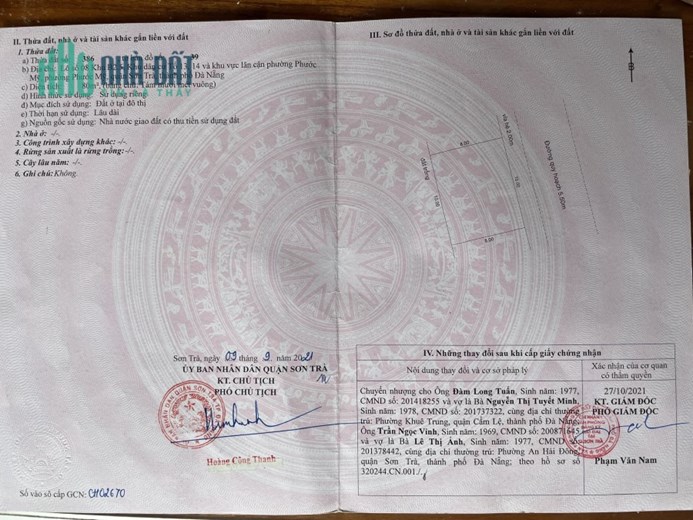 II. Thửa đất, nhà ở và tài sản khác gắn liền với đất
1. Thửa đất:
a) Thửa 386
14 và khu vực lân cận phường Phước
Mỹ, phường Phước Đà Nẵng
NHÀ ĐẤT
d) Hình thức sử dụng: Sử dụng riêng
đ) Mục đích sử dụng: Đất ở tại đô thị
e) Thời hạn sử dụng: Lâu dài
g) Nguồn gốc sử dụng: Nhà nước giao đất có thu tiền sử dụng đất
2. Nhà ở: -/-.
3. Công trình xây dựng khác: -/-.
4. Rừng sản xuất là rừng trồng: -/-.
5. Cây lâu năm: -/-.
6. Ghi chú: Không.
Sơn Trà, ngày 09 tháng 9 năm 2021
ỦY BAN NHÂN DÂN QUẬN SƠN TRÀ
KT. CHỦ TỊCH
PHÓ CHỦ TỊCH
Hoàng Công Thanh
Số vào sổ cấp GCN: CH02670
III. Sơ đồ thửa đất, nhà ở và tài sản khác gắn liền với đất
B
Vỉa hè 2.00m
Đường quy hoạch 5.50m
đất trống
IV. Những thay đổi sau khi cấp giấy chứng nhận
Nội dung thay đổi và cơ sở pháp lý
Xác nhận của cơ quan có thẩm quyền
Chuyển nhượng cho Ông Đàm Long Tuấn, Sinh năm: 1977,
CMND số: 201418255 và vợ là Bà Nguyễn Thị Tuyết Minh,
Sinh năm: 1978, CMND số: 201737322, cùng địa chỉ thường
trú: Phường Khuê Trung, quận Cẩm Lệ, thành phố Đà Nẵng
Ông Trần Ngọc Vinh, Sinh năm: 1969, CMND số: 200871645
và vợ là Bà Lê Thị Ánh, Sinh năm: 1977, CMND số
201378442, cùng địa chỉ thường trú: Phường An Hải Đông,
quận Sơn Trà, thành phố Đà Nẵng; theo hồ sơ số
320244.CN.001./.
27/10/2021
KT. GIÁM ĐỐC
PHÓ GIÁM ĐỐC
Phạm Văn Nam